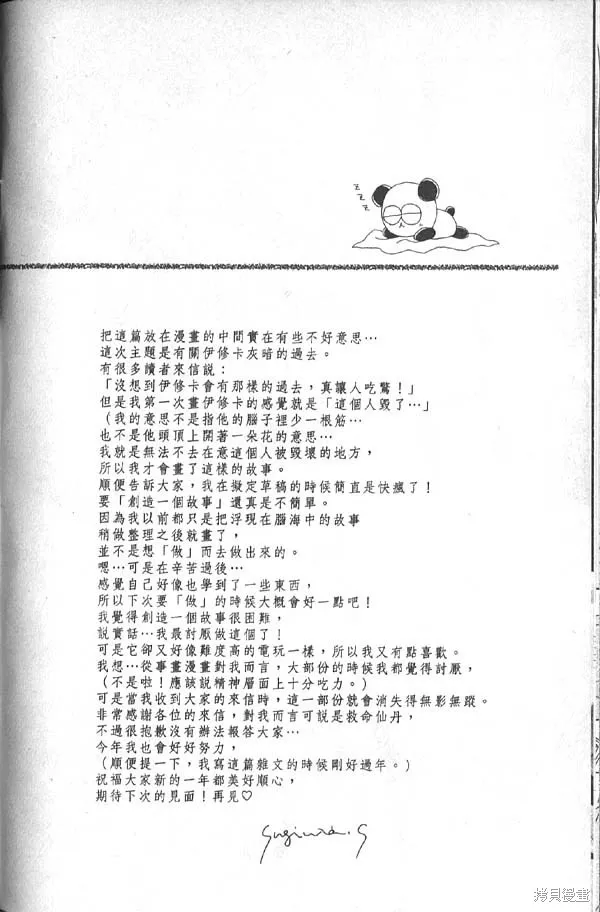 z
z
z
把這篇放在漫畫的中間實在有些不好意思…
這次主題是有關伊修卡灰暗的過去。
有很多讀者來信説：
「沒想到伊修卡會有那樣的過去，真讓人吃驚！」
但是我第一次畫伊修卡的感覺就是「這個人毀了…」
（我的意思不是指他的腦子裡少一根筋…
也不是他頭頂上開著一朵花的意思…
我就是無法不去在意這個人被毀壞的地方，
所以我才會畫了這樣的故事。
順便告訴大家，我在擬定草稿的時候簡直是快瘋了！
要「創造一個故事」還真是不簡單。
因為我以前都只是把浮現在腦海中的故事
稍做整理之後就畫了，
並不是想「做」而去做出來的。
嗯…可是在辛苦過後…
感覺自己好像也學到了一些東西，
所以下次要「做」的時候大概會好一點吧！
我覺得創造一個故事很困難，
説實話…我最討厭做這個了！
可是它卻又好像難度高的電玩一樣，所以我又有點喜歡。
我想…從事畫漫畫對我而言，大部份的時候我都覺得討厭，
（不是啦！應該説精神層面上十分吃力。）
可是當我收到大家的來信時，這一部份就會消失得無影無蹤。
非常感謝各位的來信，對我而言可説是救命仙丹，
不過很抱歉沒有辦法報答大家…
今年我也會好好努力，
（順便提一下，我寫這篇雜文的時候剛好過年。）
祝福大家新的一年都美好順心，
期待下次的見面！再見♡
Sugiura.S
拷貝漫畫